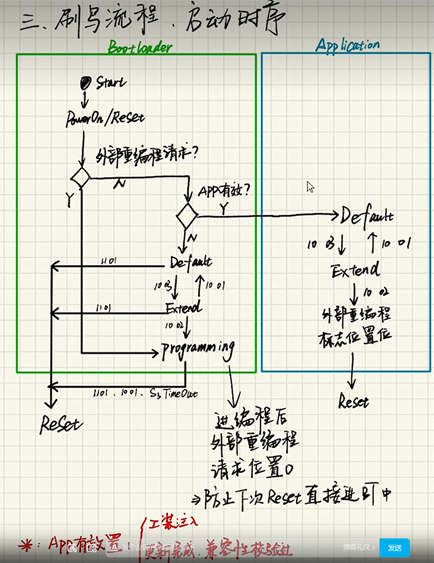 三、刷写流程、启动时序
Bootloader
Application
Start
PowerOn/Reset
外部重编程请求?
Y
N
APP有效?
Y
N
Default
1101
10 03
10 01
Extend
1101
10 02
programming
1101、1001、S3TimeOut
Reset
Default
10 03
10 01
Extend
10 02
外部重编程
标志位置位
Reset
进编程后
外部重编程
请求位置0
⇒防止下次Reset直接进BT中
*：App有效置1
工装注入
更新完成、兼容性校验过
发送